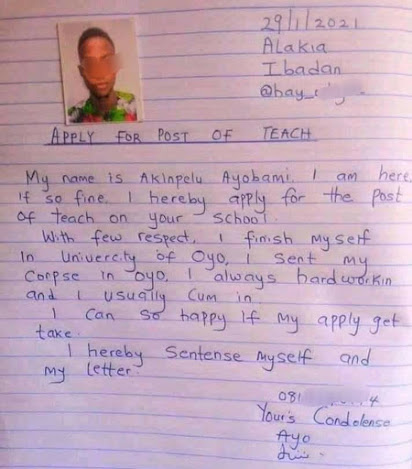 29/1/2021
Alakia
Ibadan
@bay_
APPLY FOR POST OF TEACH
My name is Akinpelu Ayobami. I am here
If so fine. I hereby apply for the post
Of teach on your school.
With few respect, I finish myself
In Univercity of Oyo, I sent my
Corpse in Oyo, I always hardworkin
and I usually Cum in.
I Can so happy If my apply get
take.
I hereby Sentense Myself and
my letter.
081 4
Your's Condolense
Ayo